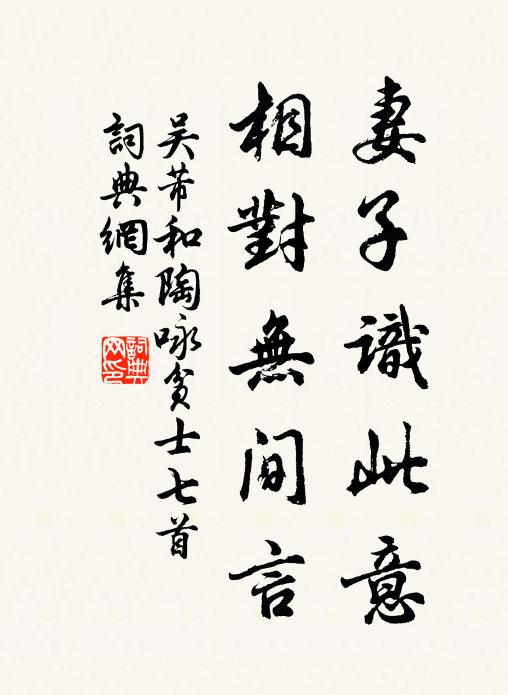 妻子識此意
相對無间言
吴芾和陶咏貧士七首
詞典網集
詞典網印